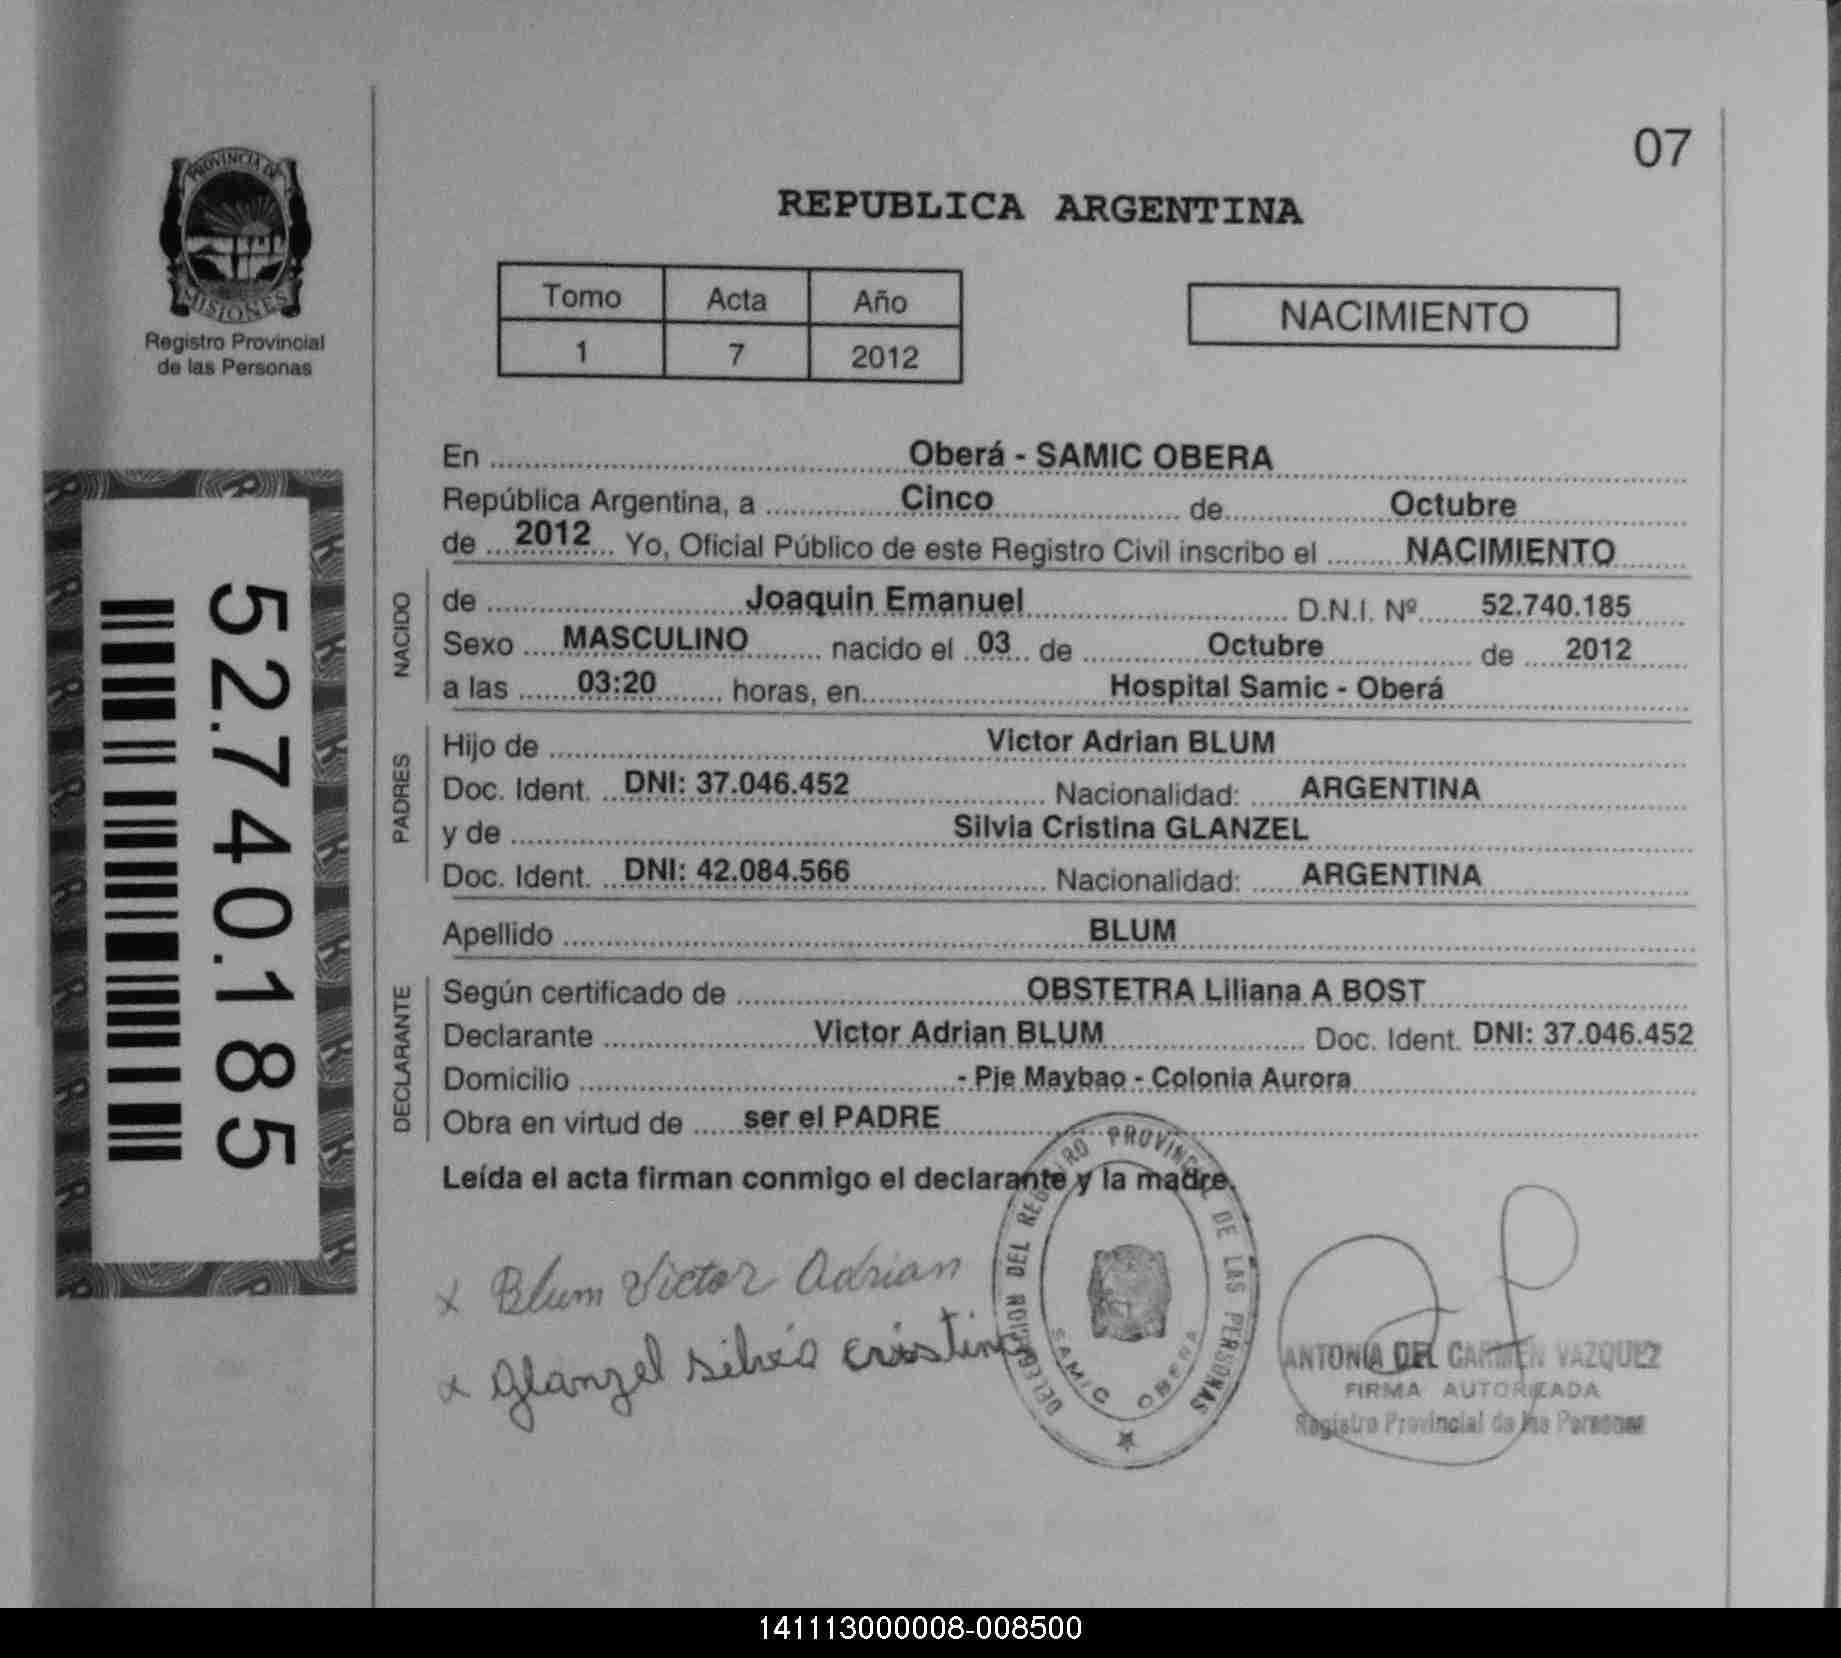 07
PROVINCIA DE
MISIONES
Registro Provincial
de las Personas
REPUBLICA ARGENTINA
Tomo Acta Año
1 7 2012
NACIMIENTO
52.740.185
En Oberá - SAMIC OBERA
República Argentina, a Cinco de Octubre
de 2012 Yo, Oficial Público de este Registro Civil inscribo el NACIMIENTO
NACIDO
de Joaquin Emanuel D.N.I. Nº 52.740.185
Sexo MASCULINO nacido el 03 de Octubre de 2012
a las 03:20 horas, en Hospital Samic - Oberá
PADRES
Hijo de Victor Adrian BLUM
Doc. Ident. DNI: 37.046.452 Nacionalidad: ARGENTINA
y de Silvia Cristina GLANZEL
Doc. Ident. DNI: 42.084.566 Nacionalidad: ARGENTINA
Apellido BLUM
DECLARANTE
Según certificado de OBSTETRA Liliana A BOST
Declarante Victor Adrian BLUM Doc. Ident. DNI: 37.046.452
Domicilio - Pje Maybao - Colonia Aurora
Obra en virtud de ser el PADRE
Leída el acta firman conmigo el declarante y la madre.
x Blum Victor Adrian
x Glanzel silvia cristina
DELEGACION DEL REGISTRO PROVINCIAL DE LAS PERSONAS
SAMIC OBERA
ANTONIA DEL CARMEN VAZQUEZ
FIRMA AUTORIZADA
Registro Provincial de las Personas
141113000008-008500